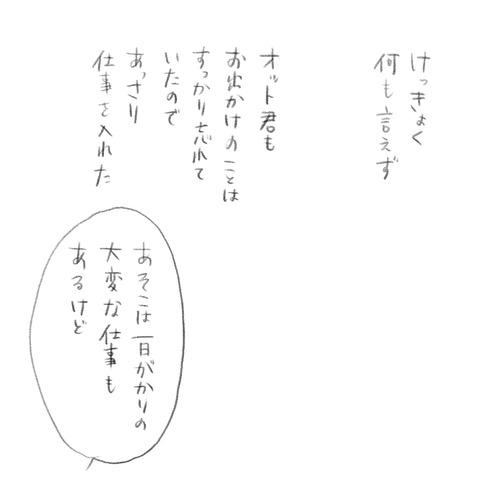 けっきょく
何も言えず
オット君も
お出かけのことは
すっかり忘れて
いたので
あっさり
仕事を入れた
あそこは一日がかりの
大変な仕事も
あるけど